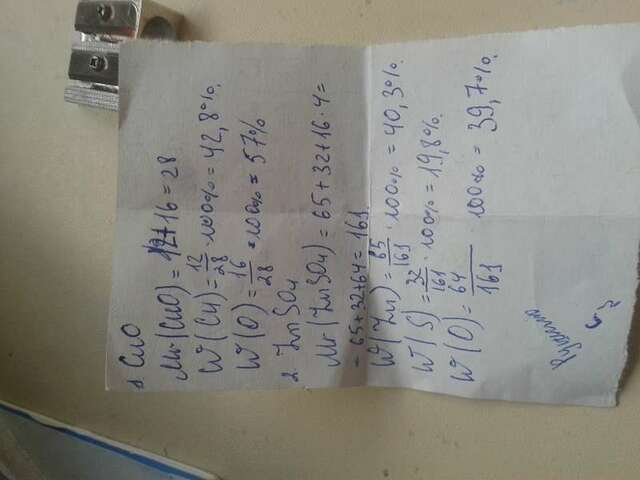 1. CuO
Mr(CuO) = 12+16 = 28
W(Cu) = 12/28 · 100% = 42,8%.
W(O) = 16/28 · 100% = 57%
2. ZnSO4
Mr(ZnSO4) = 65+32+16·4=
= 65+32+64 = 161.
W(Zn) = 65/161 · 100% = 40,3%
W(S) = 32/161 · 100% = 19,8%.
W(O) = 64/161 · 100% = 39,7%.